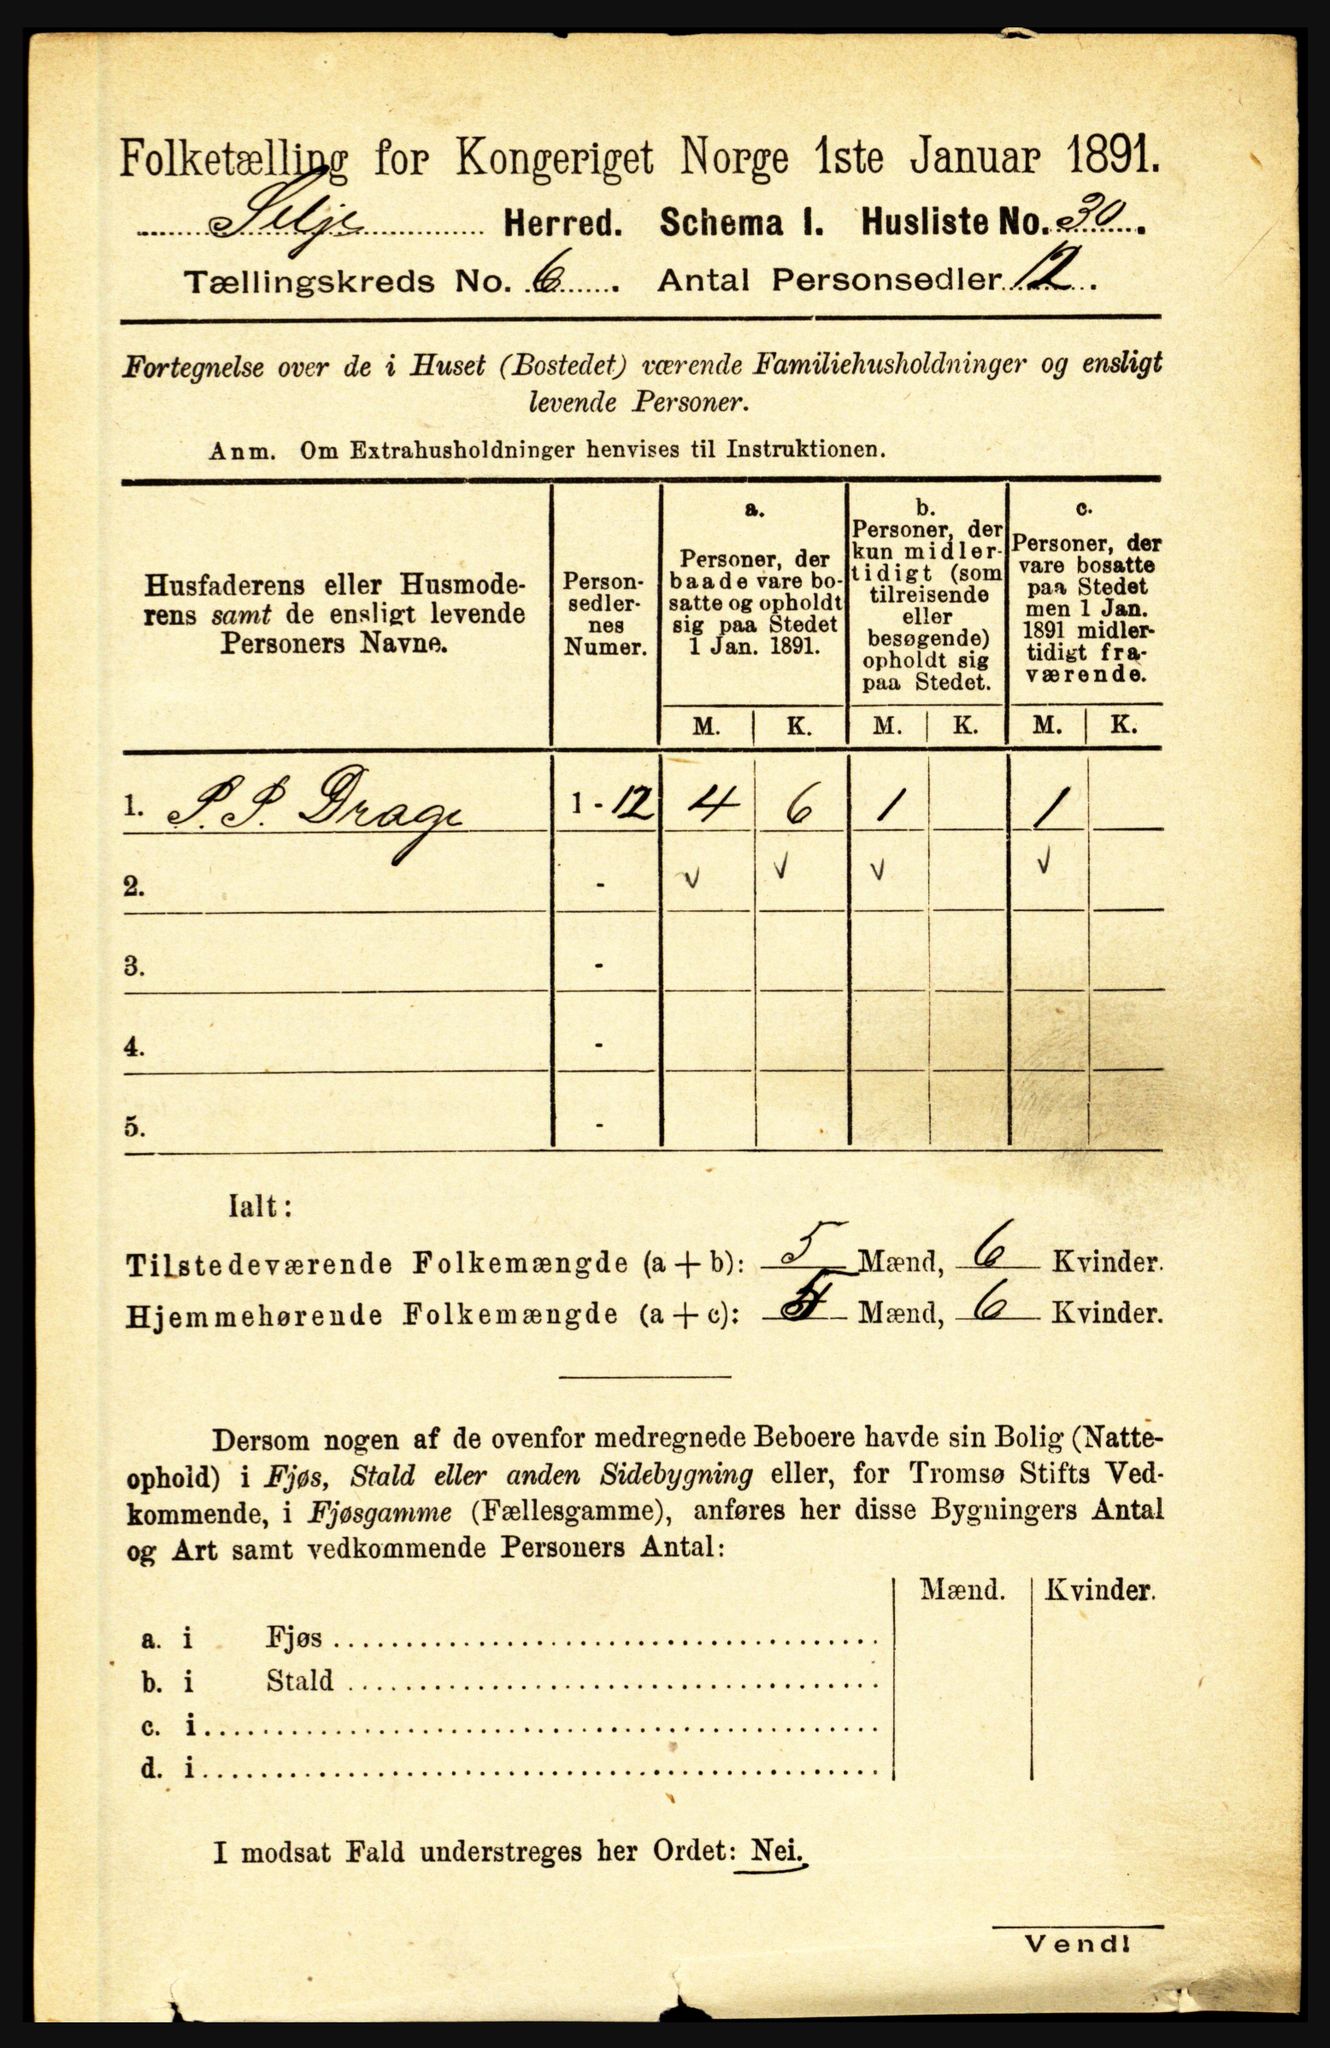 Folketælling for Kongeriget Norge 1ste Januar 1891.
Selje Herred. Schema I. Husliste No. 30.
Tællingskreds No. 6. Antal Personsedler 12.
Fortegnelse over de i Huset (Bostedet) værende Familiehusholdninger og ensligt
levende Personer.
Anm. Om Extrahusholdninger henvises til Instruktionen.
Husfaderens eller Husmode-
rens samt de ensligt levende
Personers Navne.
Person-
sedler-
nes
Numer.
a.
Personer, der
baade vare bo-
satte og opholdt
sig paa Stedet
1 Jan. 1891.
b.
Personer, der
kun midler-
tidigt (som
tilreisende
eller
besøgende)
opholdt sig
paa Stedet.
c.
Personer, der
vare bosatte
paa Stedet
men 1 Jan.
1891 midler-
tidigt fra-
værende.
M. K. M. K. M. K.
1. P. P. Drage 1-12 4 6 1 1
2. - v v v v
3. -
4. -
5. -
Ialt:
Tilstedeværende Folkemængde (a + b): 5 Mænd, 6 Kvinder.
Hjemmehørende Folkemængde (a + c): 5 Mænd, 6 Kvinder.
Dersom nogen af de ovenfor medregnede Beboere havde sin Bolig (Natte-
ophold) i Fjøs, Stald eller anden Sidebygning eller, for Tromsø Stifts Ved-
kommende, i Fjøsgamme (Fællesgamme), anføres her disse Bygningers Antal
og Art samt vedkommende Personers Antal:
Mænd. Kvinder.
a. i Fjøs
b. i Stald
c. i
d. i
I modsat Fald understreges her Ordet: Nei.
Vend!